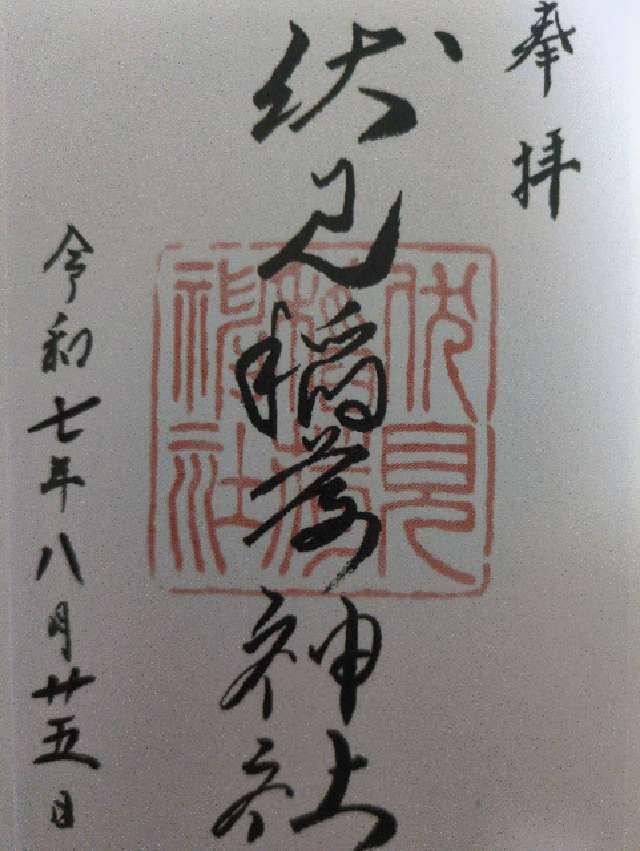 奉拝
伏見稲荷神社
伏見
稲荷
神社
令和七年八月廿五日